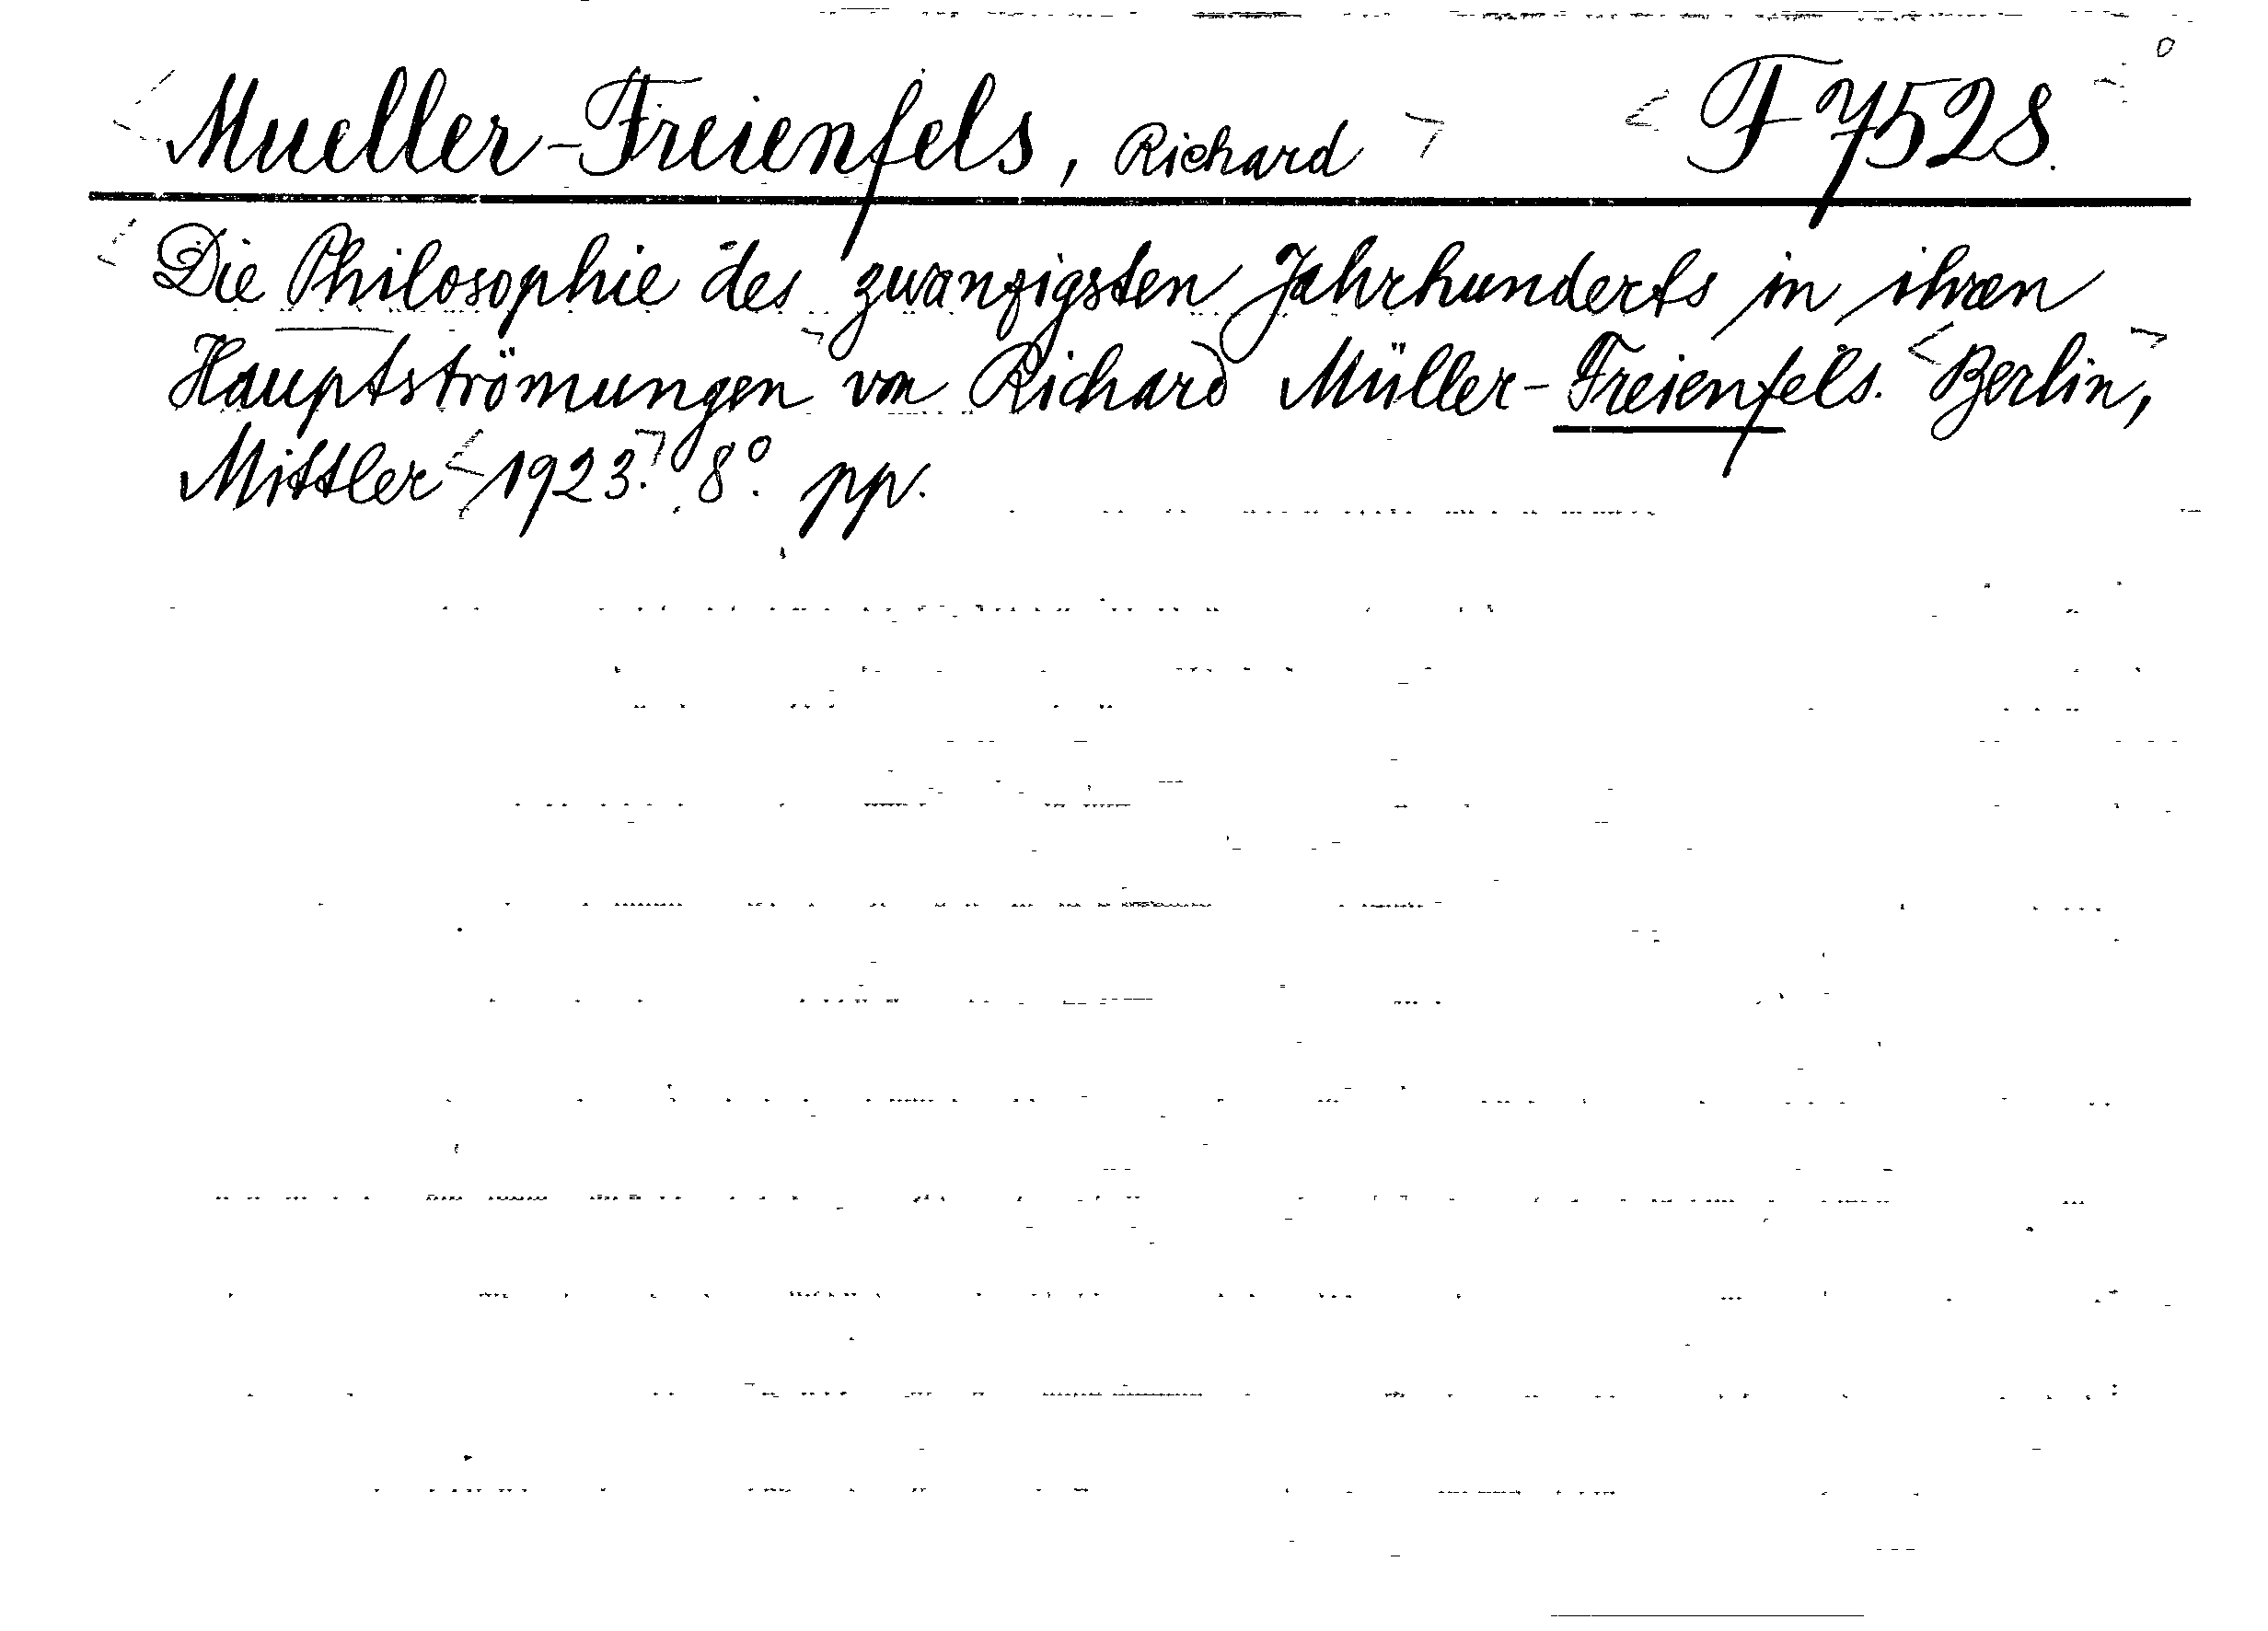 Mueller-Freienfels, Richard F 7528.
Die Philosophie des zwanzigsten Jahrhunderts in ihren
Hauptströmungen von Richard Müller-Freienfels. Berlin,
Mittler 1923. 8°. pp.